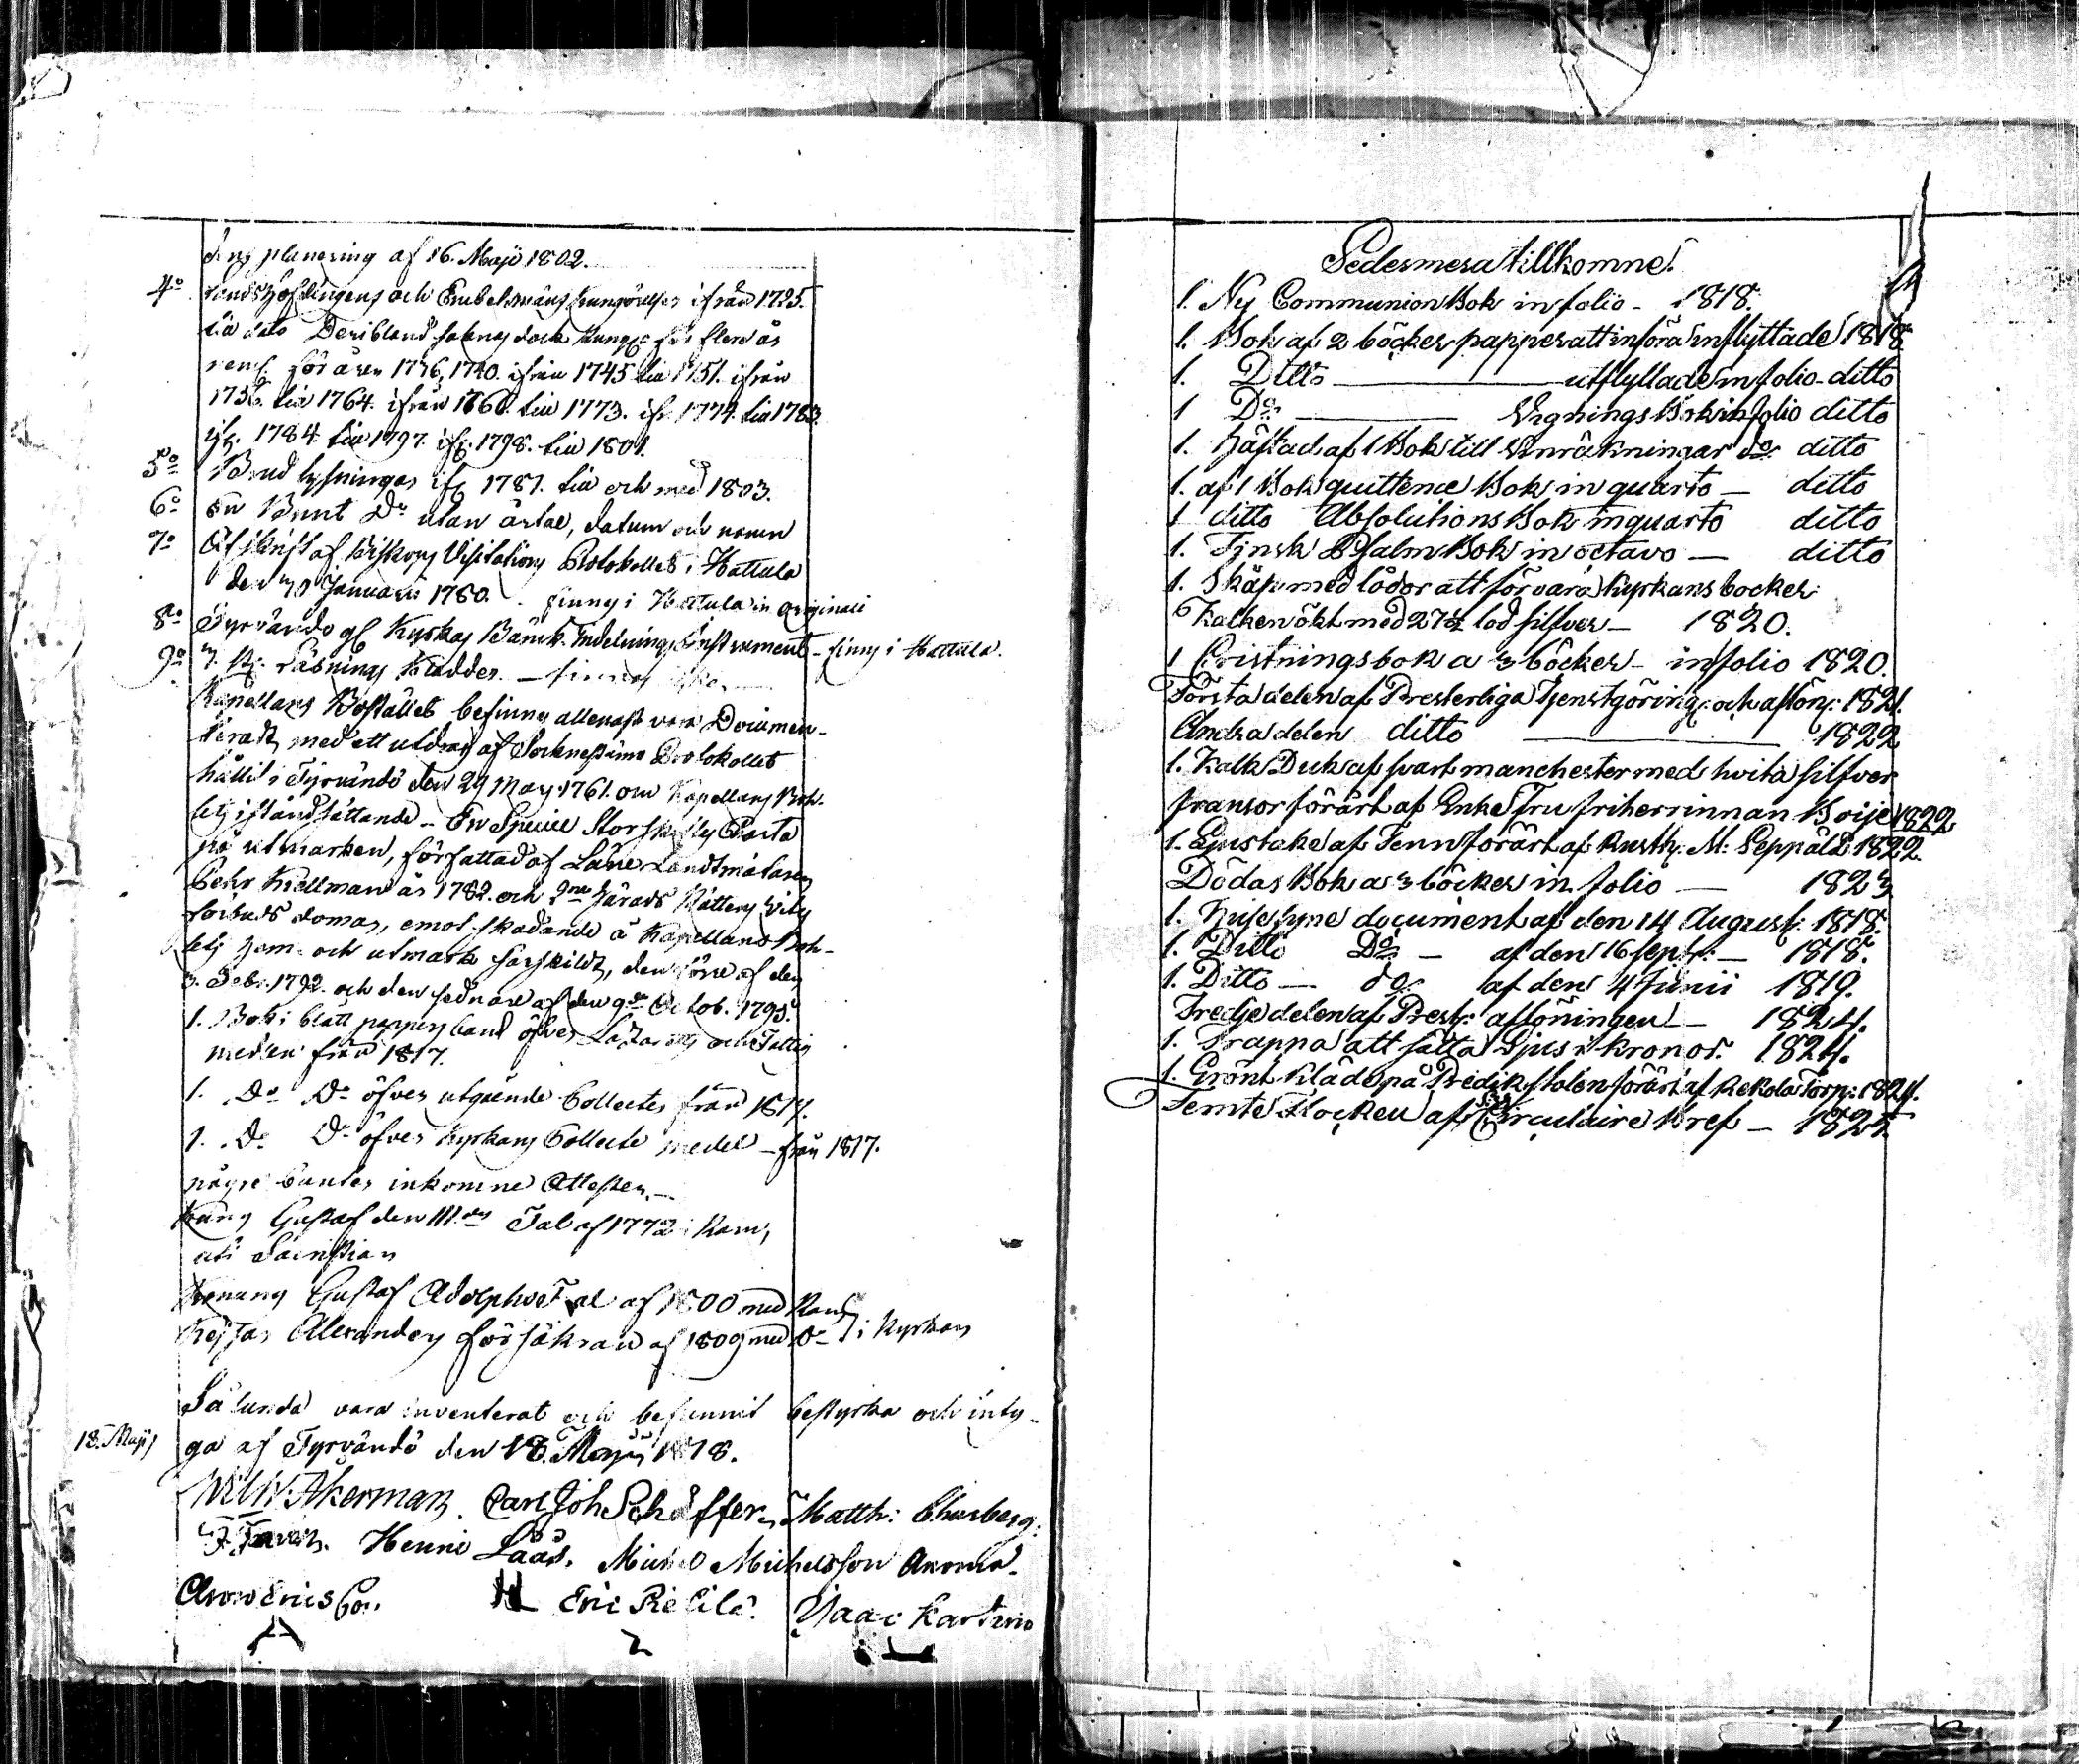 planering af 16. Maji 1802.
4o Landshöfdingens och Embetsmäns kungörelser ifrån 1725.
till dato Deribland saknas dock kung: för flere år
neml. för åren 1736, 1740. ifrån 1745 till 1751. ifrån
1756. till 1764. ifrån 1766. till 1773. ifr. 1774. till 1783.
ifr. 1784. till 1797. ifr. 1798. till 1801.
5o Brud lysningar ifr 1781. till och med 1803.
6o En Bunt Do utan årtal, datum och namn
7o Afskrift af Biskops Visitations Protokollet i Hattula
den 30 Januarii 1780. finns i Hattula in originali
8o Tyrvändö gl Kyrkas Bänk Indelnings Instrument - finns i Hattula.
9o 3. st. Läsnings Kladdar —
Kapellans Bostället befinns allenast vara Documen-
teradt, med ett utdrag af Sockenstämo Protokollet
hållit i Tyrvändö den 29 May 1761. om Kapellans Bohl-
lets iståndsättande - En Speciel Storskifts Charta
på utmarken, författad af Läne Landtmätaren
Pehr Kiellman år 1782. och 2ne Härads Rättens vites
förbuds domar, emot skadande å Kapellans Boh-
lets hem- och utmark särskildt, den förre af den
3. Febr. 1792. och den sednare af den 9de Octob. 1795.
1. Bok i blått pappers band öfver Lazarets och Fattig
medlen från 1817.
1. Do Do öfver utgående Collecter från 1817.
1. Do Do öfver Kyrkans Collecte medel - från 1817.
några bunter inkomne Attester. —
Kung Gustaf den III.des Tal af 1772 i Ram,
uti Sacristian
Konung Gustaf Adolphs Tal af 1800 med Ram
Kejsar Alexanders försäkran af 1809 med Do } i Kyrkan
Sålunda vara inventerat och befunnit bestyrka och inty-
18. Maji ga af Tyrvändö den 18. Maji 1818.
Wilh: Åkerman. Carl Joh Schäffer. Matth: Chorberg:
Henric Lääs. Michel Michelsson Anoma.
Ericsson. Eric Pietilä. Isaac Karturo
Sedermera tillkomne.
1. Ny Communion Bok in folio - 1818.
1. Bok af 2 böcker papper att införa inflyttade 1818
1. Ditto — utflyttade in folio - ditto
1 Do — Vignings Bok in folio ditto
1. häftad af 1 Bok till Anräkningar do ditto
1. af 1 Bok quittence Bok in quarto — ditto
1 ditto Absolutions Bok in quarto ditto
1. Finsk Psalm Bok in octavo — ditto
1. Skåp med lådor att förvara kyrkans bocker.
Kalken ökt med 27½ lod silfver — 1820.
1 Cristningsbok a 3 böcker - in folio 1820.
Första delen af Presterliga Tjenstgöring: och aflön: 1821.
Andra delen ditto — 1822
1. Kalk Duk af svart manchester med hvita silfver
fransor förärt af Enke Fru friherrinnan Boije 1822
1. Ljustake af Tenn förärt af Rusth: M: Seppälä 1822.
Dödas Bok a 3 böcker in folio — 1823
1. Husesyne document af den 14 August: 1818.
1. Ditto Do — af den 16 Sept: — 1818.
1. Ditto — do af den 4 Junii 1819.
Tredje delen af Prest: aflöningen — 1824.
1. Trappa att sätta ljus i kronor. 1824.
1. Grönt kläde på Predikstolen förärt af Rekola Torp: 1824.
Femte Flocken af Circulaire Bref — 1825